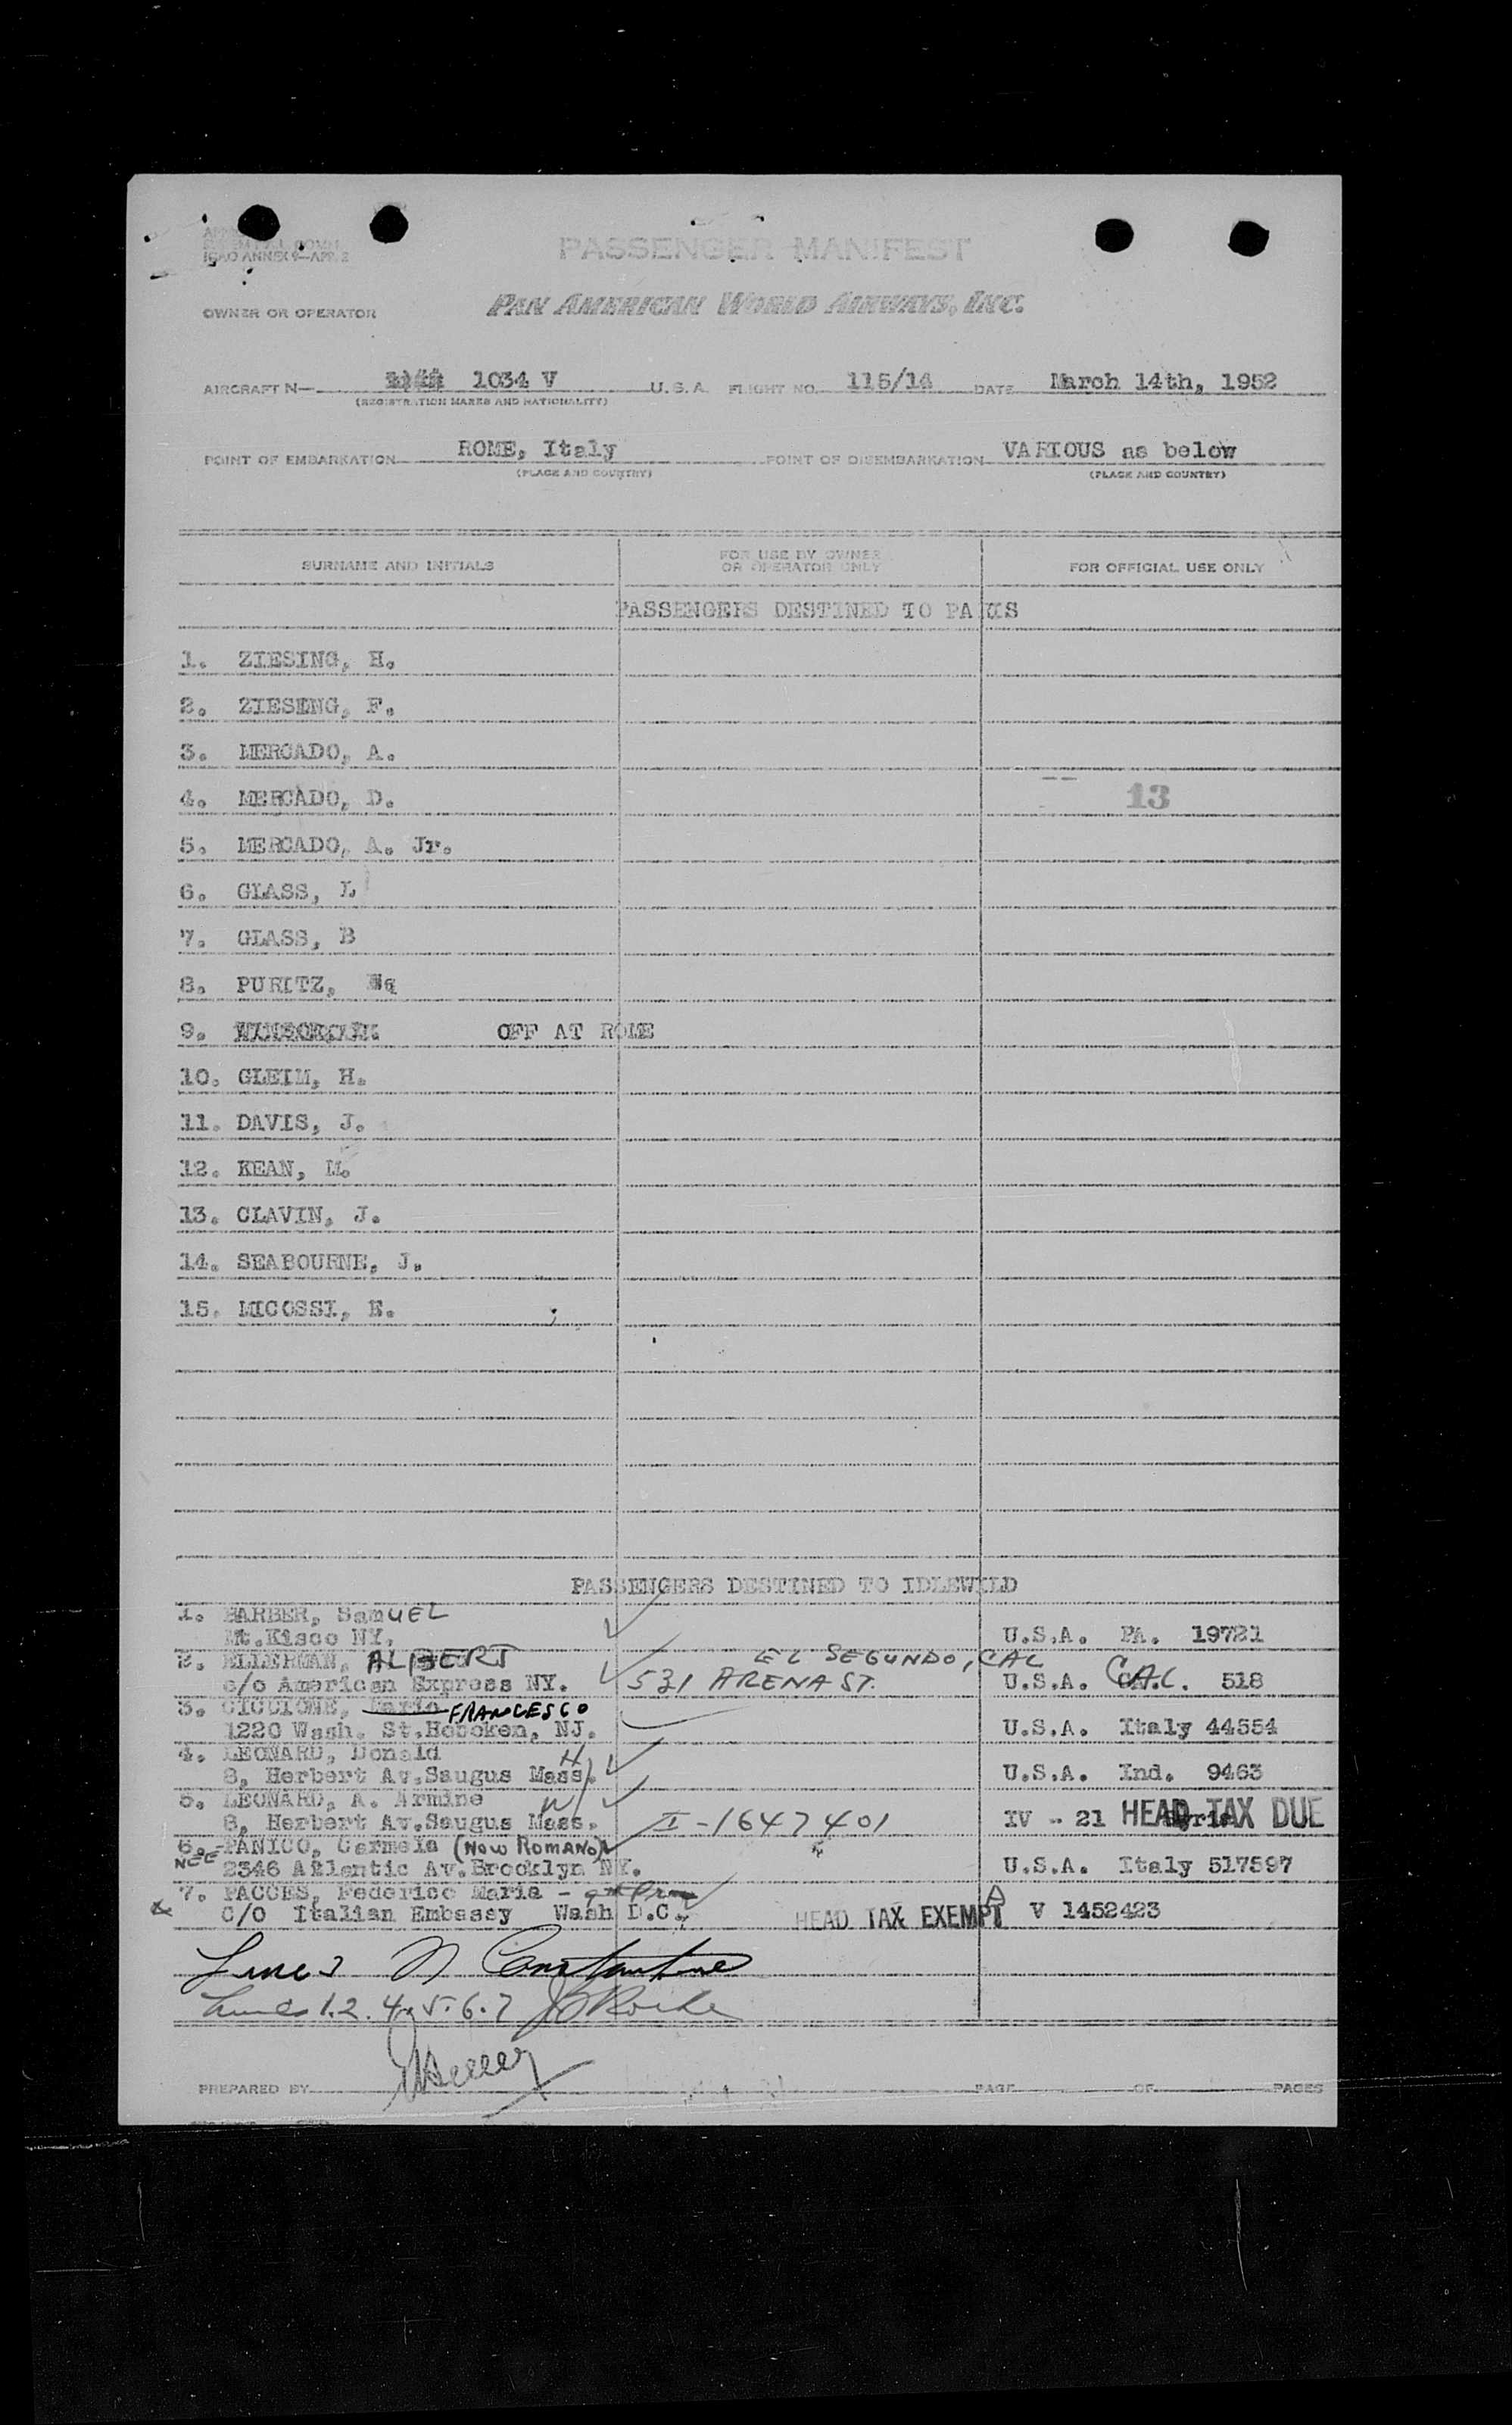 ICAO ANNEX 9—APP. 2
PASSENGER MANIFEST
OWNER OR OPERATOR PAN AMERICAN WORLD AIRWAYS, INC.
AIRCRAFT N— 1034 V U.S.A. FLIGHT NO. 115/14 DATE March 14th, 1952
(REGISTRATION MARKS AND NATIONALITY)
POINT OF EMBARKATION ROME, Italy POINT OF DISEMBARKATION VARIOUS as below
(PLACE AND COUNTRY) (PLACE AND COUNTRY)
SURNAME AND INITIALS FOR USE BY OWNER OR OPERATOR ONLY FOR OFFICIAL USE ONLY
PASSENGERS DESTINED TO PARIS
1. ZIESING, H.
2. ZIESENG, F.
3. MERCADO, A.
4. MERCADO, D. 13
5. MERCADO, A. Jr.
6. GLASS, L
7. GLASS, B
8. PURITZ,
9. OFF AT ROME
10. GLEIM, H.
11. DAVIS, J.
12. KEAN, M.
13. CLAVIN, J.
14. SEABOURNE, J.
15. MICOSSI, E.
PASSENGERS DESTINED TO IDLEWILD
1. BARBER, SamUEL
Mt.Kisco NY. U.S.A. PA. 19721
2. ELLERMAN, ALBERT EL SEGUNDO, CAL
c/o American Express NY. 531 ARENA ST. U.S.A. CAL. 518
3. CICCIONE, Mario FRANCESCO
1220 Wash. St.Hoboken, NJ. U.S.A. Italy 44554
4. LEONARD, Donald H
8, Herbert Av.Saugus Mass. U.S.A. Ind. 9463
5. LEONARD, A. Armine W
8, Herbert Av.Saugus Mass. I-1647401 IV - 21 Syria HEAD TAX DUE
6. PANICO, Carmela (NOW ROMANO)
NEE 2346 Atlantic Av.Brooklyn NY. U.S.A. Italy 517597
7. PACCES, Federico Maria -
C/O Italian Embassy Wash D.C. HEAD TAX EXEMPT V 1452423
Line 3 N Constantine
Lines 1.2.4.5.6.7
PREPARED BY PAGE OF PAGES